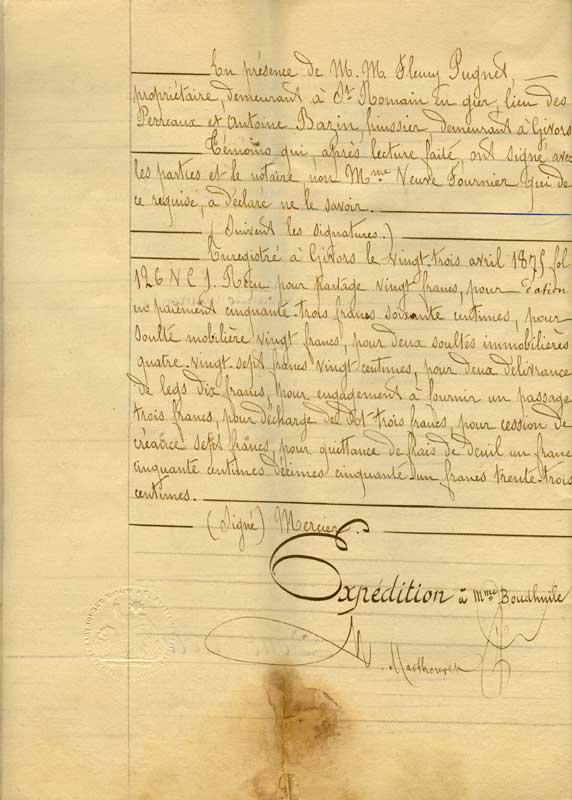 En présence de M. M. Fleury Pugnet,
propriétaire, demeurant à St Romain en gier, lieu des
Perreaux et Antoine Bazin, huissier, demeurant à Givors
Témoins qui après lecture faite, ont signé avec
les parties et le notaire non Mme Veuve Fournier qui de
ce requise, a déclaré ne le savoir.
(Suivent les signatures.)
Enregistré à Givors le vingt-trois avril 1875 fol
126 N C J. Reçu pour partage vingt francs, pour dation
en paiement cinquante-trois francs soixante centimes, pour
soulte mobilière vingt francs, pour deux soultes immobilières
quatre-vingt-sept francs vingt centimes, pour deux délivrance
de legs dix francs, pour engagement à fournir un passage
trois francs, pour décharge de dot trois francs, pour cession de
créance sept francs, pour quittance de frais de deuil un franc
cinquante centimes décimes cinquante-un francs trente-trois
centimes.
(Signé) Mercier.
Expédition à Mme Boudhuile